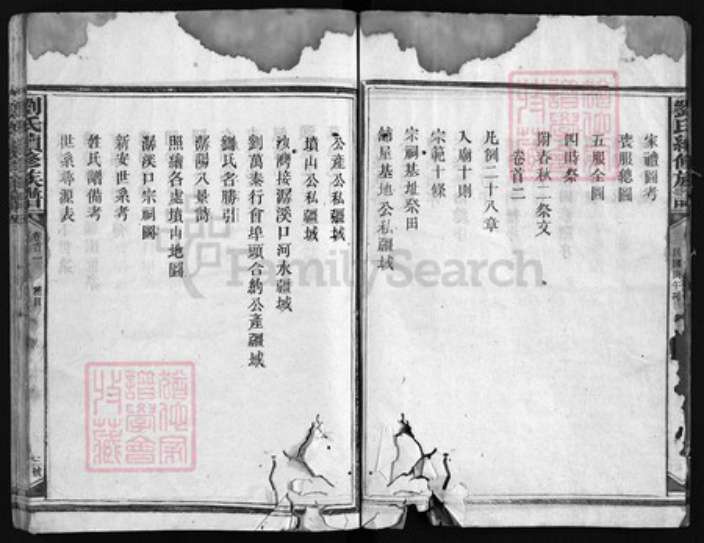 家禮圖考
喪服總圖
五服全圖
四時祭
附春秋二祭文
卷首二
凡例二十八章
入廟十則
宗範十條
宗祠基址祭田
舖屋基地公私疆域
公產公私疆域
墳山公私疆域
劉萬秦行會埠頭合約公產疆域
劉氏名勝引
潺陽八景詩
照繪各處墳山地圖
潺溪口宗祠圖
新安世系考
姓氏譜備考
世系尋源表
劉氏續修族譜
FamilySearch